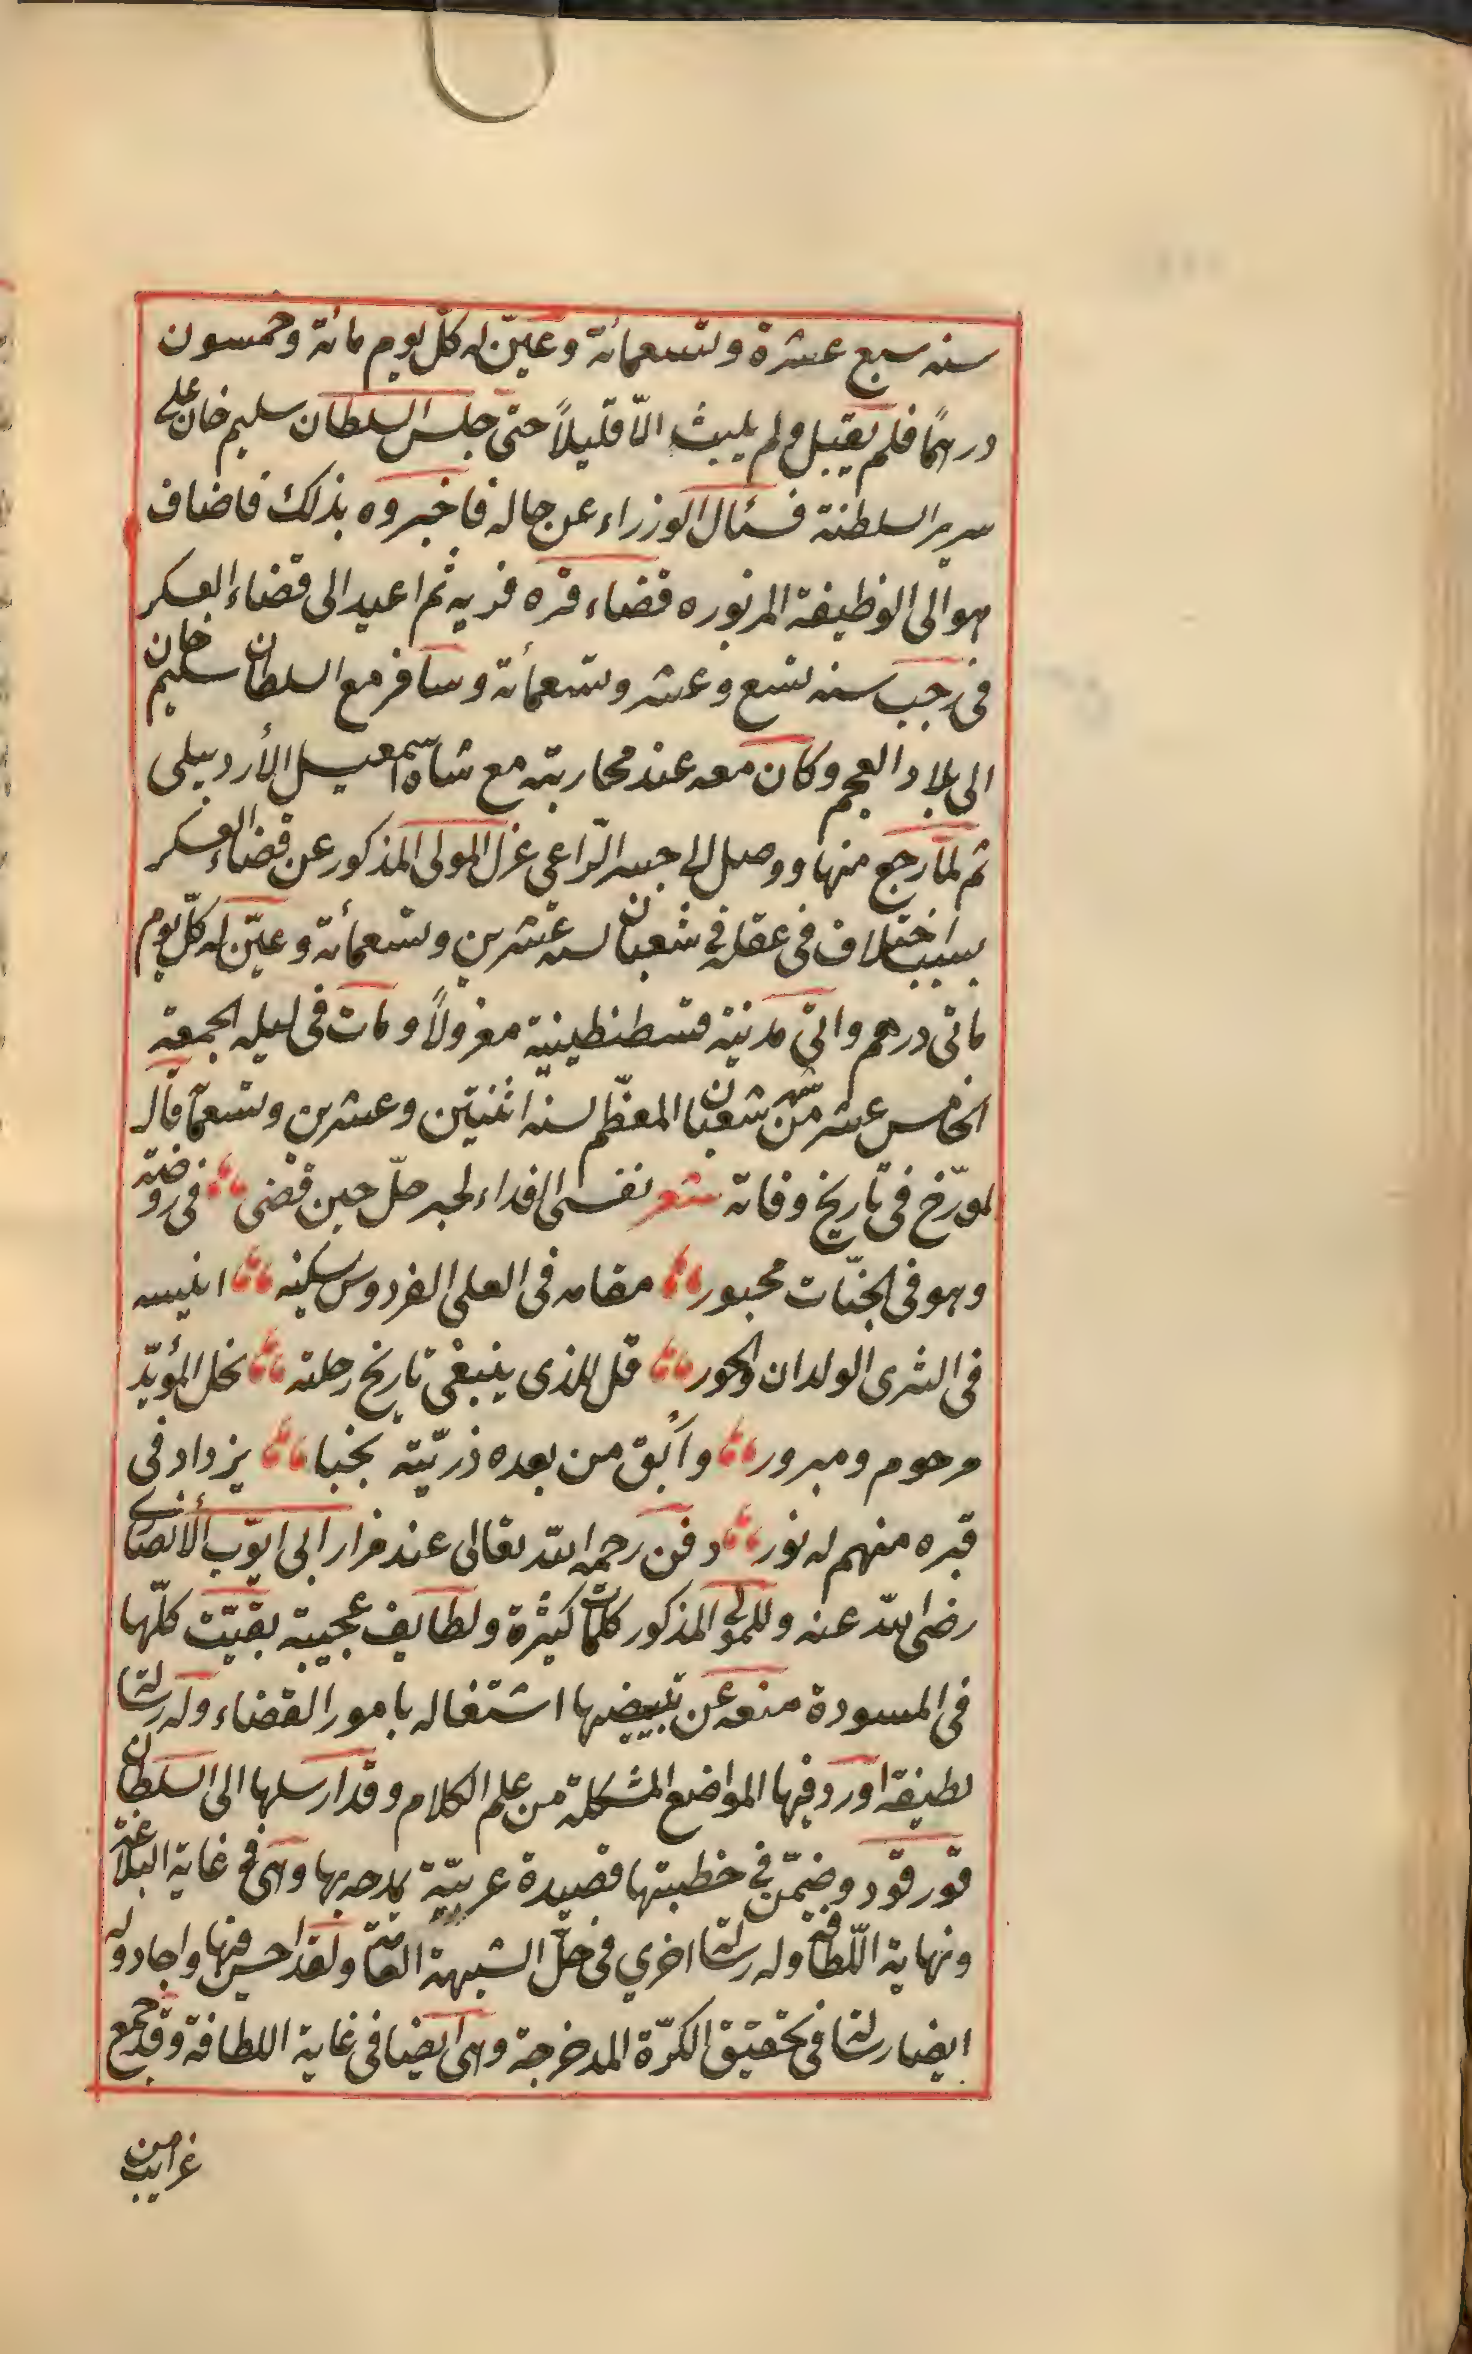 سنه سبع عشرة وتسعمائة وعيّن له كلّ يوم مائة وخمسون
درهمًا فلم يقبل ولم يلبث الّا قليلاً حتى جلس السلطان سليم خان على
سرير السلطنة فسئال الوزراء عن حاله فاخبروه بذلك فاضاف
هو الى الوظيفة المزبوره قضاء قره فريه ثم اعيد الى قضاء العسكر
فى رجب سنه تسع وعشر وتسعمائة وسافر مع السلطان سليم خان
الى بلاد العجم وكان معه عند محاربته مع شاه اسمعيل الأردبيلى
ثم لمّا رجع منها ووصل الى جسر الرّاعى عزل المولى المذكور عن قضاء العسكر
بسبب اختلاف فى عقله فى شعبان لسنه عشرين وتسعمائة وعيّن له كلّ يوم
مائتى درهم واتى مدينة قسطنطينية معزولاً ومات فى ليله الجمعة
الخامس عشر من شهر شعبان المعظّم لسنه اثنتين وعشرين وتسعمأ قال
لمورّخ فى تاريخ وفاته شعر نفسى الفداء لحبر حلّ حين قضى فى روضة
وهو فى الجنّات محبور مقامه فى العلى الفردوس سكينه انيسه
فى الثرى الولدان والحور قل للذى ينبغى تاريخ رحلته نحل المؤيّد
مرحوم ومبرور وأبق من بعده ذريّتة نجبا يزداد فى
قبره منهم له نور دفن رحمه الله تعالى عند مزار ابى ايّوب الأنصارى
رضى الله عنه وللمولى المذكور كلمات كثيرة ولطايف عجيبة بقيت كلّها
فى المسودة منعه عن تبييضها اشتغاله بامور القضاء وله رسالة
لطيفة اورد فيها المواضع المشكلة من علم الكلام وقد ارسلها الى السلطان
قورقود وضمّن فى خطبتها قصيدة عربيّة يمدحه بها وهى فى غاية البلاغة
ونهاية اللّطافة وله رسالة اخرى فى حلّ الشبهة العامّة ولقد احسن فيها واجاد وله
ايضا رسالة فى تحقيق الكرّة المدحرجة وهى ايضا فى غاية اللطافة وقد جمع
من غرايب